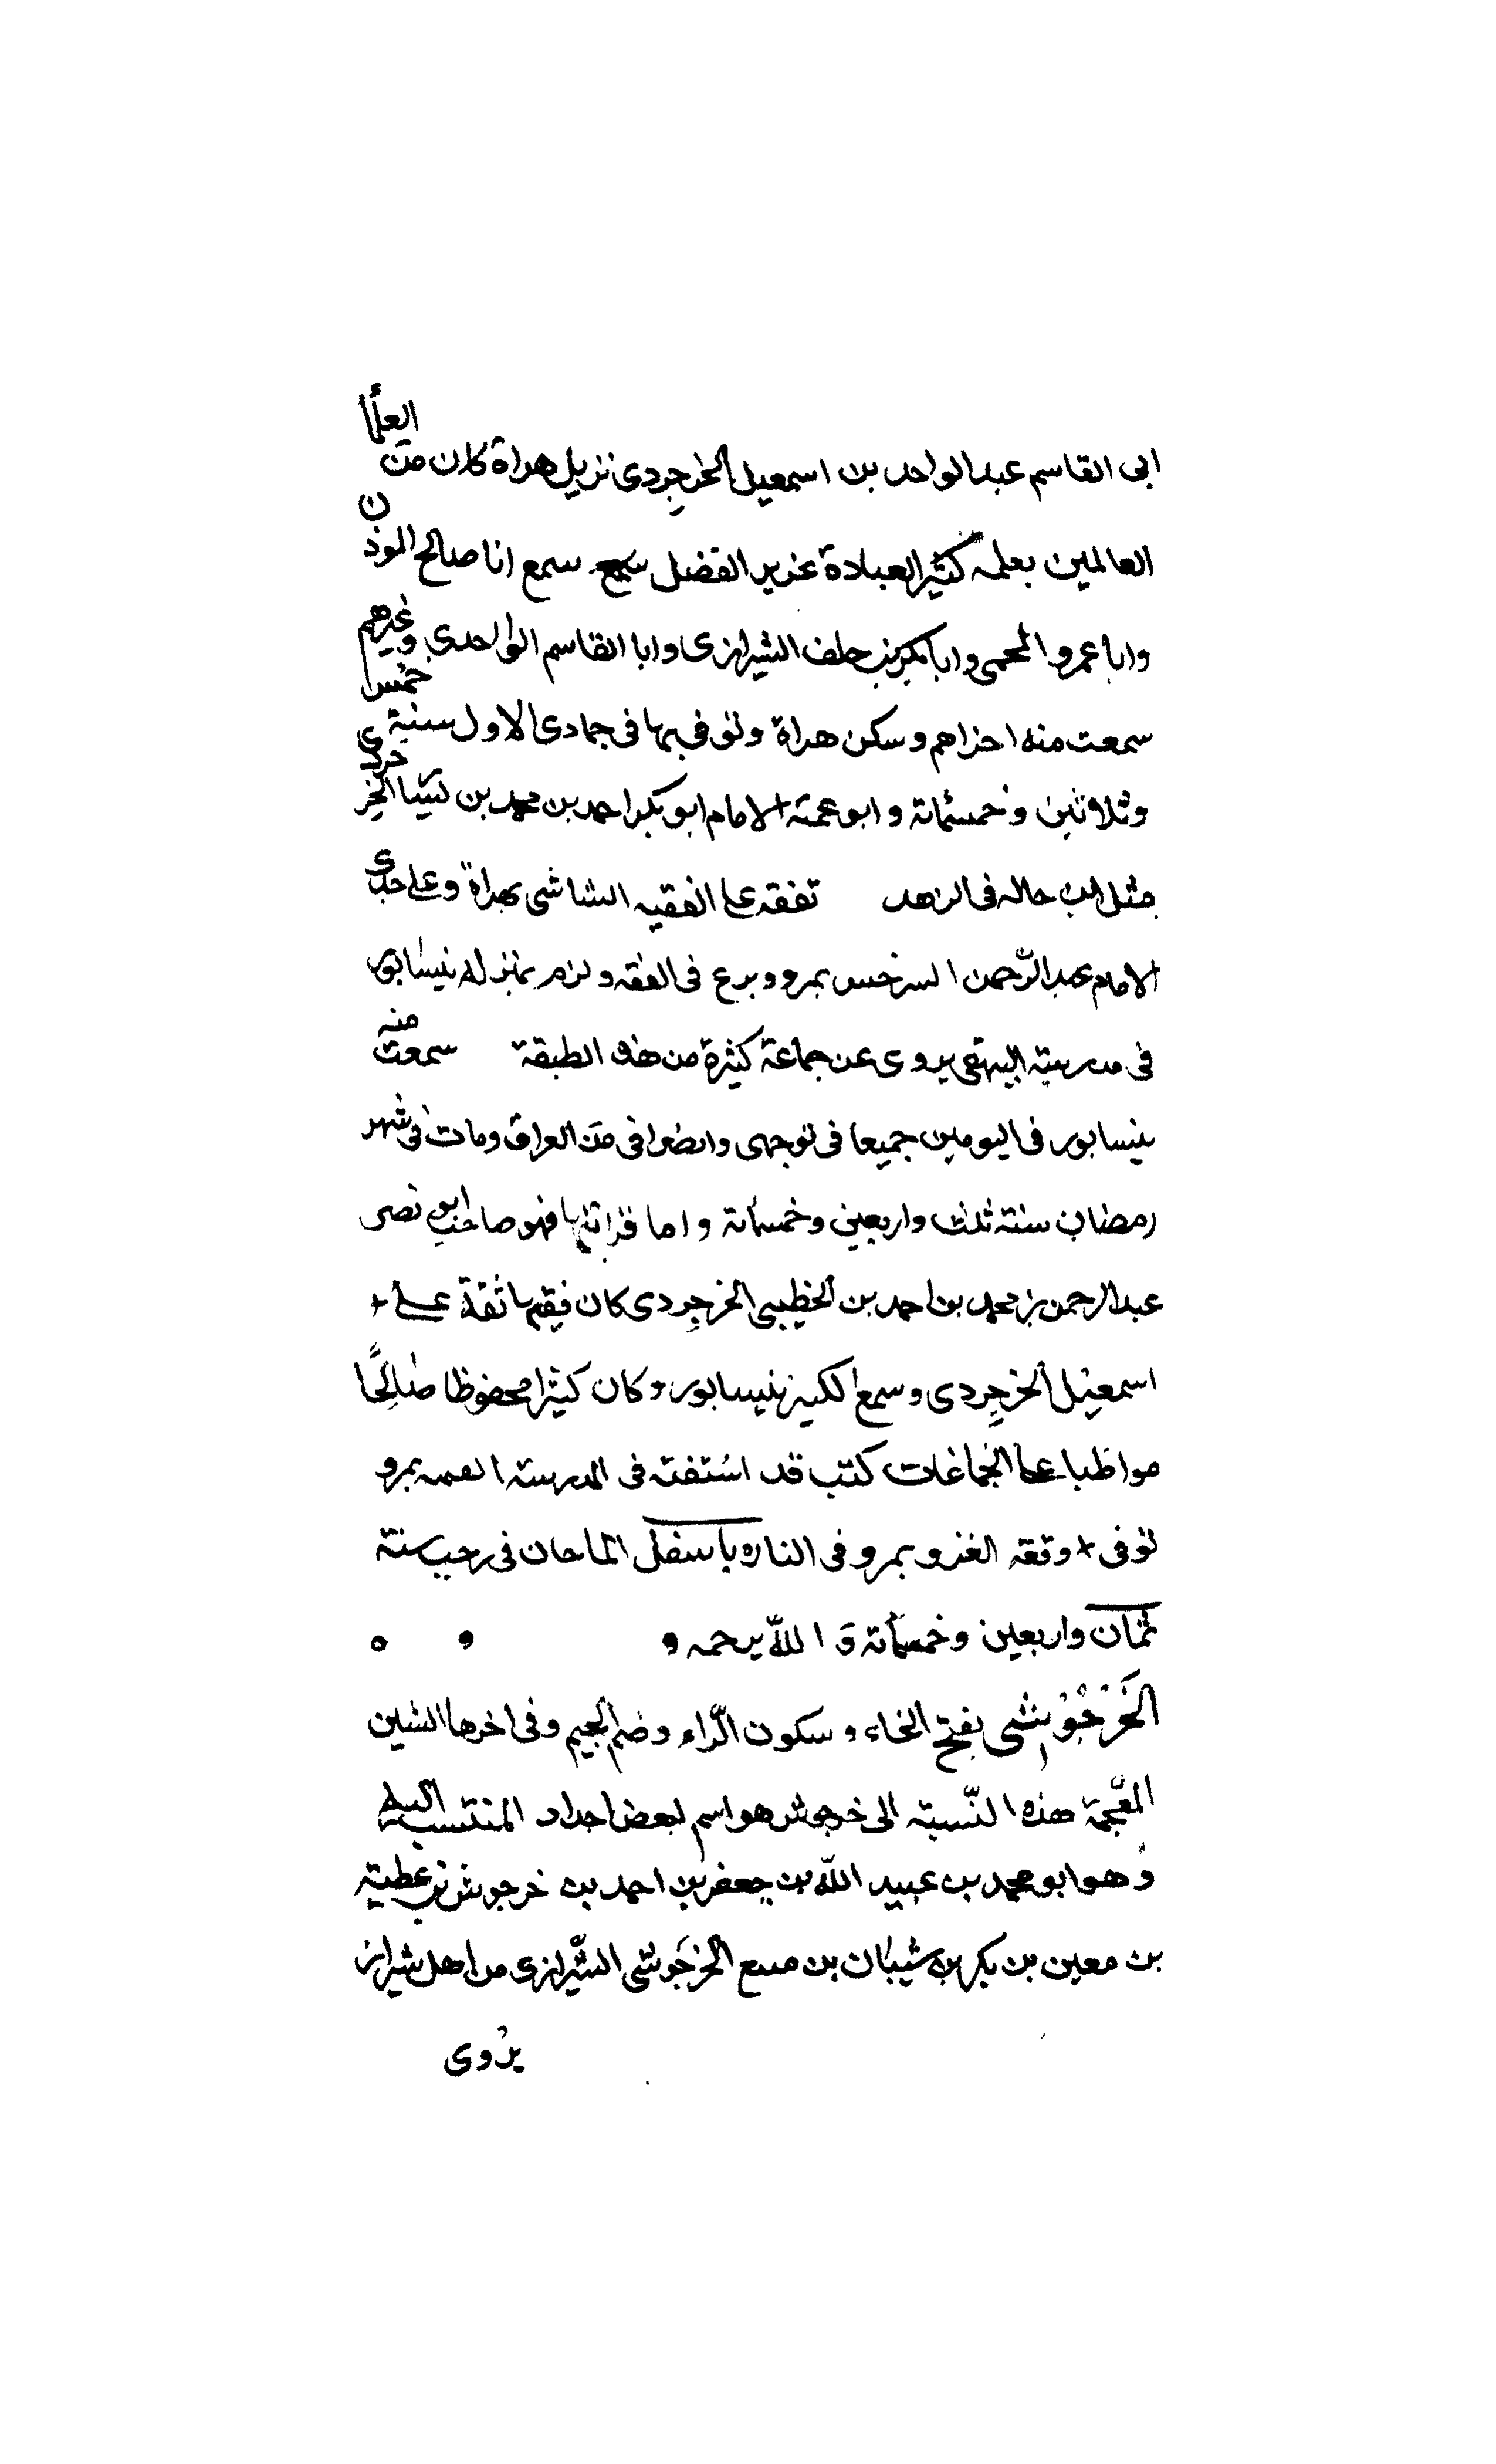 ابى القاسم عبد الواحد بن اسمعيل الخرجِردى نزيل هراة كان من العلمأ
العالمين بعلمه كثير العبادة عزير الفضل سمع سمع انا صالح الموذن
وابا عمرو المحمى وابا بكر بن حلف الشيرازى وابا القاسم الواحدى وغيرهم
سمعت منه احزاهم وسكن هراة وتوفى بها فى جمادى الاول سنة خمس
وثلاثين وخمسمائة وابو عمته الامام ابو بكر احمد بن محمد بن الخرجردى
مثل ابن حاله فى الزهد تفقه على الفقيه الشاشى بهراة وعلى جدى
الامام عبد الرّحمن السرخس بمرو وبرع فى الفقه ولزم منزله بنيسابور
فى مدرسة البيهقى يروى عن جماعة كثيرة من هذه الطبقة سمعت منه
بنيسابور فى اليومين جميعا فى توجهى وانصرافى من العراق ومات فى شهر
رمضان سنة ثلث واربعين وخمسمائة واما قرابتها فهو صاحب ابو نصر
عبد الرحمن بن محمد بن احمد بن الخطيبى الخرجِردى كان فقيها ثقة على
اسمعيل الخرجِردى وسمع الكثير بنيسابور وكان كثيرا محفوظا صالحًا
مواظبا على الجماعات كتب قد استفته فى المدرسة بمرو
توفى وقعة الغزو بمرو فى الناره باسفل الماحان فى رجب سنة
ثمان واربعين وخمسمائة وَ اللّه يرحمه
الخَرْجُوْشى بفتح الخاء وسكون الرّاء وضم الجيم وفى اخرها الشين
المعّجمة هذه النّسبة الى خرجوش هو اسم لبعض اجداد المنتسب اليه
وهو ابو محمد بن عبيد اللّه بن جعفر بن احمد بن خرجوش بن عطية
بن معين بن بكر بن شيبان بن منيع الخرجَوشى الشّيرازى من اهل شيراز
يروى